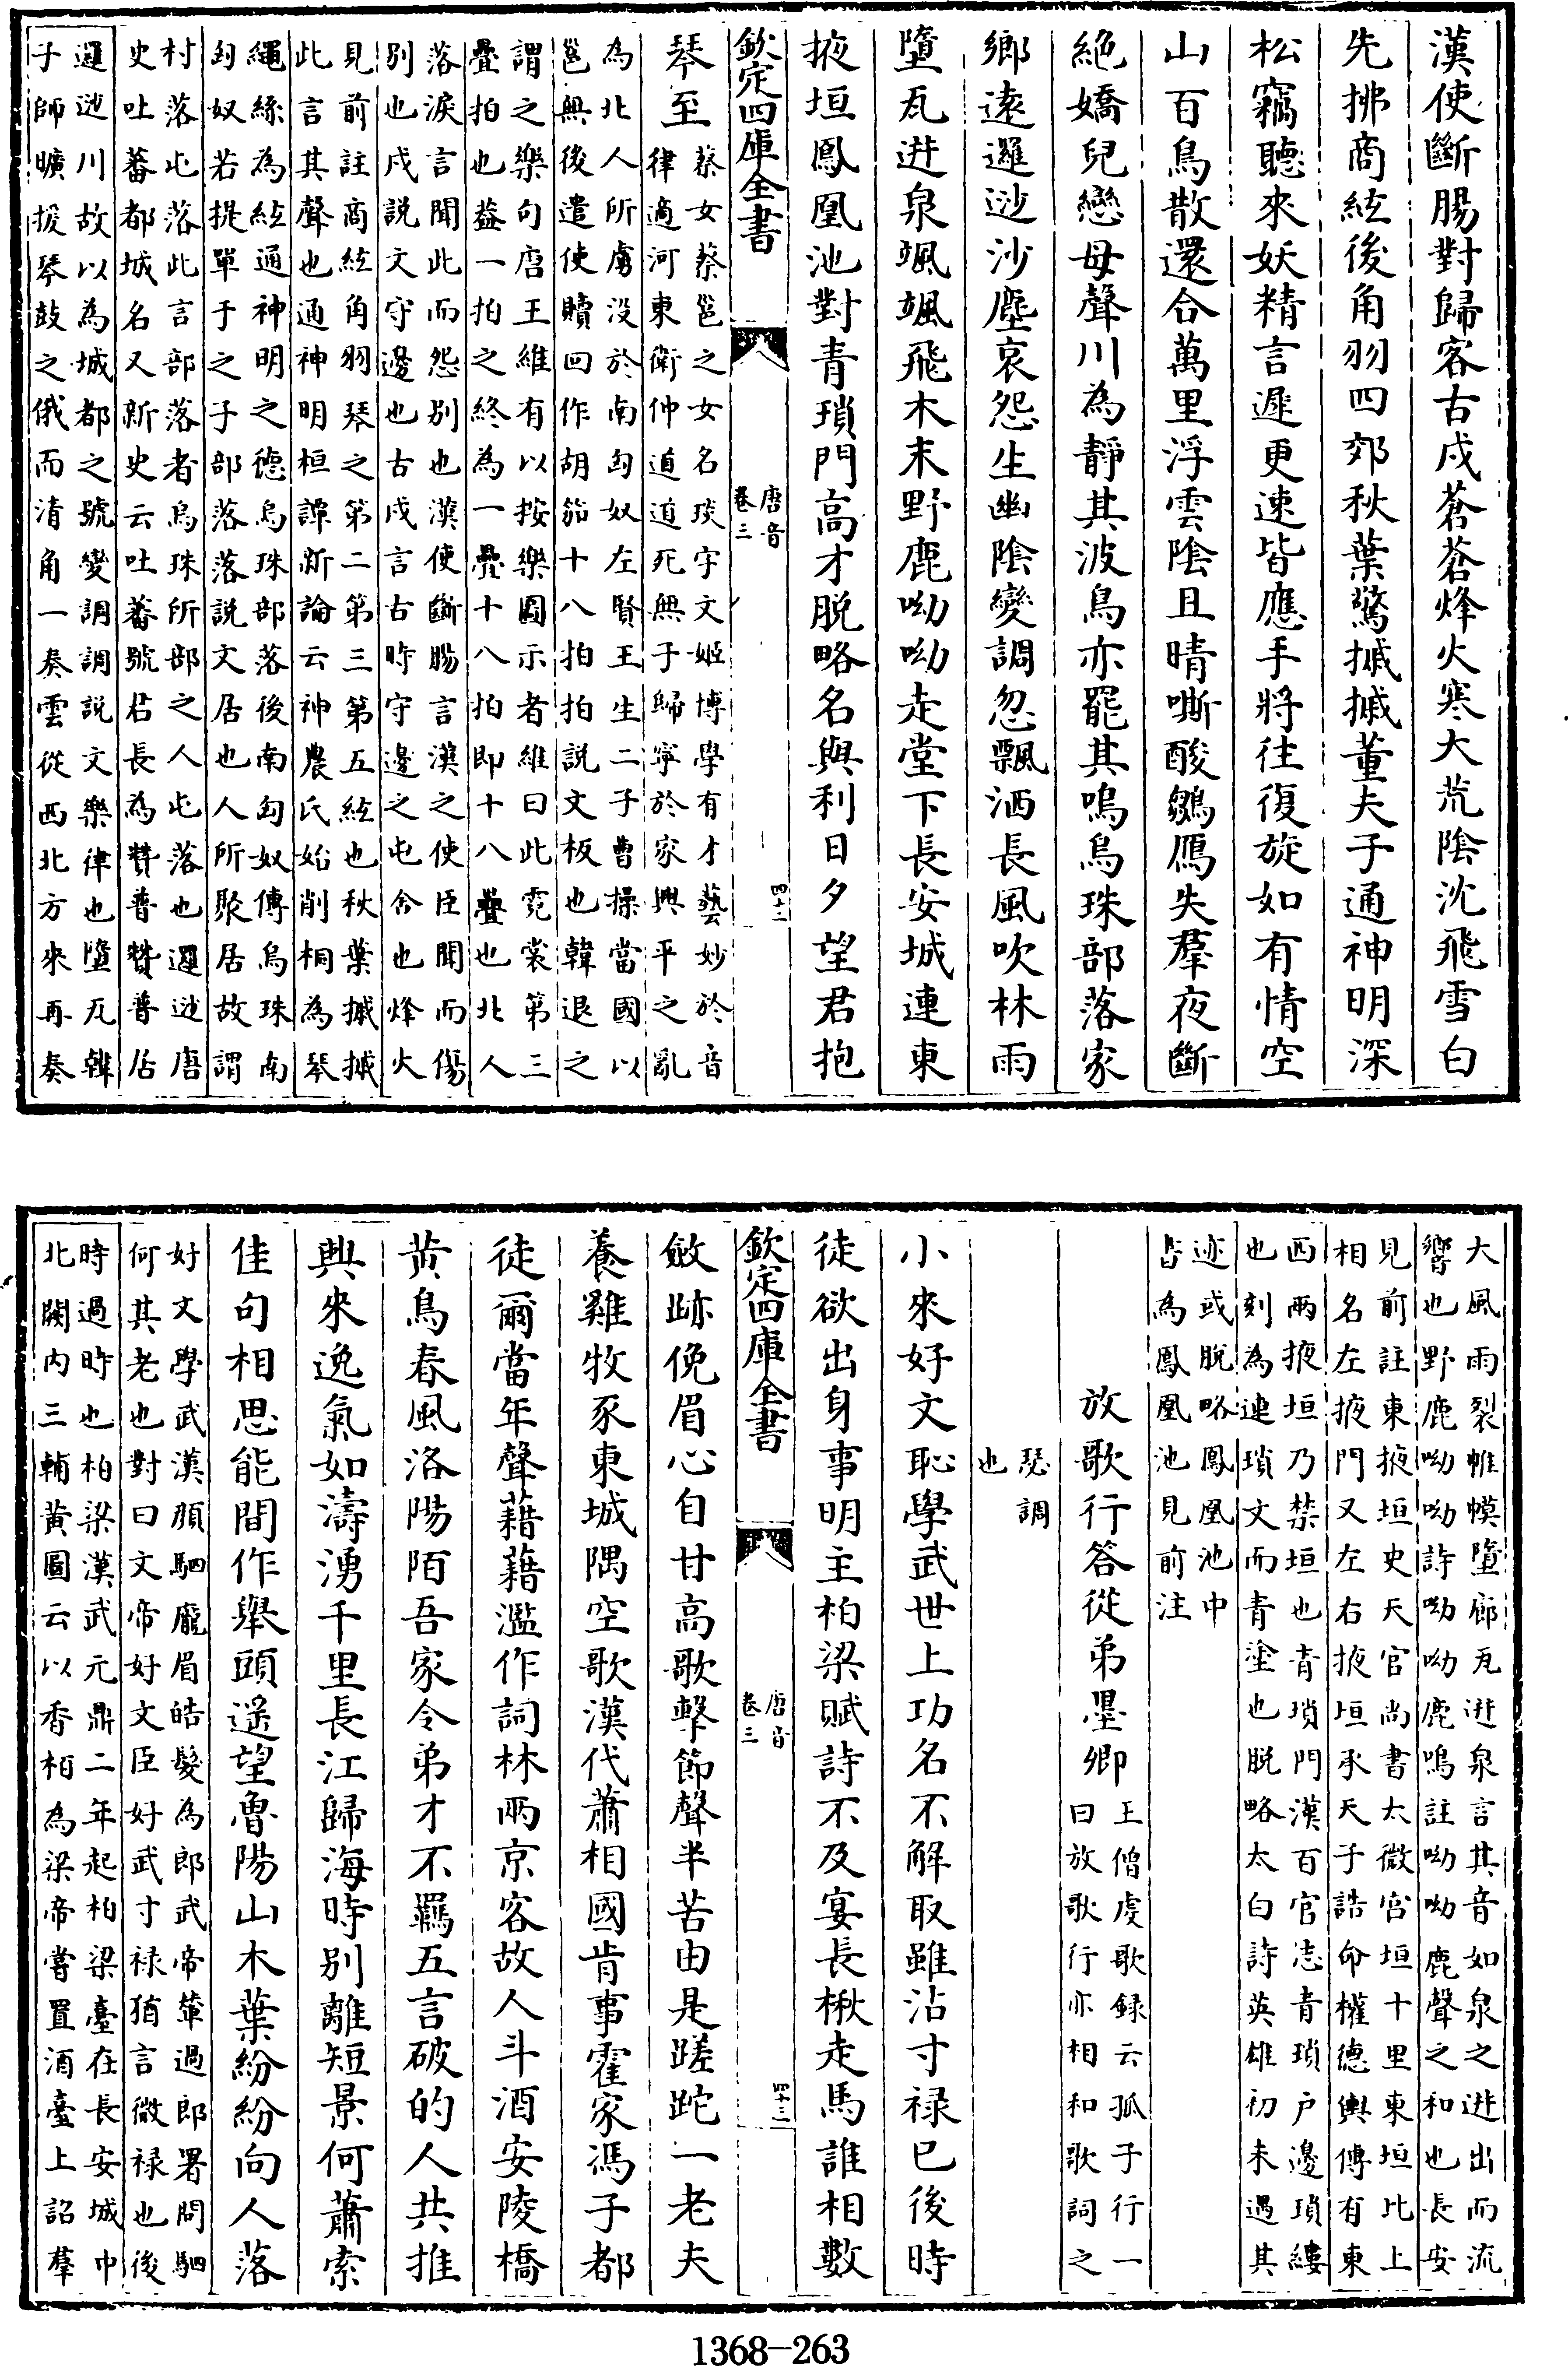 漢使斷腸對歸客古戍蒼蒼烽火寒大荒陰沈飛雪白
先拂商絃後角羽四郊秋葉驚摵摵董夫子通神明深
松竊聽來妖精言遲更速皆應手將往復旋如有情空
山百鳥散還合萬里浮雲陰且晴嘶酸鶵鴈失羣夜斷
絶嬌兒戀母聲川為靜其波鳥亦罷其鳴烏珠部落家
鄉遠邏逤沙塵哀怨生幽陰變調忽飄洒長風吹林雨
墮瓦迸泉颯颯飛木末野鹿呦呦走堂下長安城連東
掖垣鳳凰池對青瑣門高才脱略名與利日夕望君抱
欽定四庫全書
唐音
卷三
四十二
琴至
蔡女蔡邕之女名琰字文姬博學有才藝妙於音
律適河東衛仲道道死無子歸寧於家興平之亂
為北人所虜没於南匈奴左賢王生二子曹操當國以
邕無後遣使贖回作胡笳十八拍拍説文板也韓退之
謂之樂句唐王維有以按樂圖示者維曰此霓裳第三
疊拍也益一拍之終為一疊十八拍即十八疊也北人
落淚言聞此而怨别也漢使斷腸言漢之使臣聞而傷
别也戍説文守邊也古戍言古時守邊之屯舍也烽火
見前註商絃角羽琴之第二第三第五絃也秋葉摵摵
此言其聲也通神明桓譚新論云神農氏始削桐為琴
繩絲為絃通神明之德烏珠部落後南匈奴傳烏珠南
匈奴若提單于之子部落落説文居也人所聚居故謂
村落屯落此言部落者烏珠所部之人屯落也邏逤唐
史吐蕃都城名又新史云吐蕃號君長為贊普贊普居
邏逤川故以為城都之號變調調説文樂律也墮瓦韓
子師曠援琴鼓之俄而清角一奏雲從西北方來再奏
大風雨裂帷幙墮廊瓦迸泉言其音如泉之迸出而流
響也野鹿呦呦詩呦呦鹿鳴註呦呦鹿聲之和也長安
見前註東掖垣史天官尚書太微宫垣十里東垣比上
相名左掖門又左右掖垣承天子誥命權德輿傳有東
西兩掖垣乃禁垣也青瑣門漢百官志青瑣户邊瑣縷
也刻為連瑣文而青塗也脱略太白詩英雄初未遇其
迹或脱略鳳凰池中
皆為鳳凰池見前注
放歌行答從弟墨卿
王僧虔歌録云孤子行一
曰放歌行亦相和歌詞之
瑟調
也
小來好文恥學武世上功名不解取雖沾寸禄已後時
徒欲出身事明主柏梁賦詩不及宴長楸走馬誰相數
欽定四庫全書
唐音
卷三
四十三
斂跡俛眉心自甘高歌擊節聲半苦由是蹉跎一老夫
養雞牧豕東城隅空歌漢代蕭相國肯事霍家馮子都
徒爾當年聲藉藉濫作詞林兩京客故人斗酒安陵橋
黄鳥春風洛陽陌吾家令弟才不羈五言破的人共推
興來逸氣如濤湧千里長江歸海時别離短景何蕭索
佳句相思能間作舉頭遥望魯陽山木葉紛紛向人落
好文學武漢顔駟龐眉皓髮為郎武帝輦過郎署問駟
何其老也對曰文帝好文臣好武寸禄猶言微禄也後
時過時也柏梁漢武元鼎二年起柏梁臺在長安城中
北闕内三輔黄圖云以香柏為梁帝嘗置酒臺上詔羣
1368-263